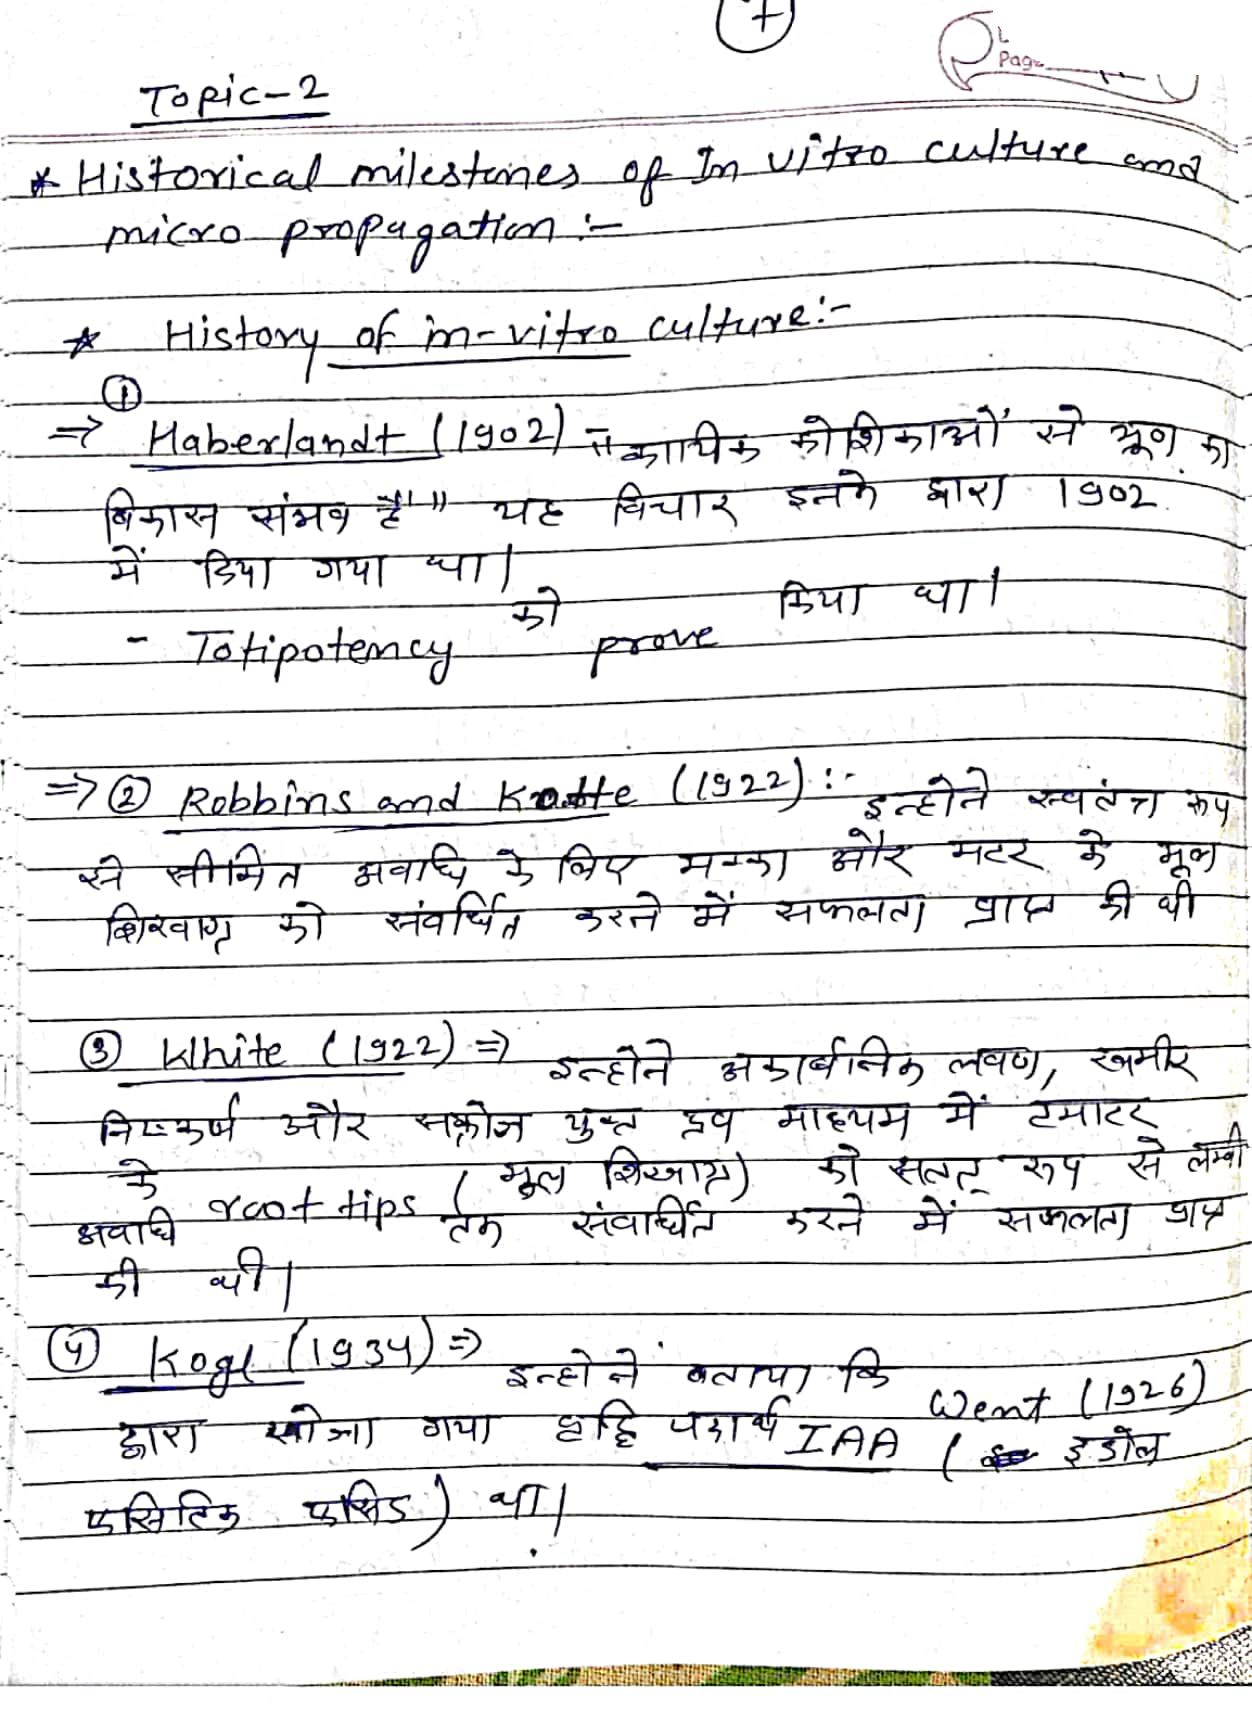 7
L
Page
Topic-2
* Historical milestones of In vitro culture and
micro propagation :-
* History of in-vitro culture:-
①
⇒ Haberlandt (1902) - "कायिक कोशिकाओं से भ्रूण का
विकास संभव है" यह विचार इनके द्वारा 1902
में दिया गया था।
- Totipotency को prove किया था।
⇒ ② Robbins and Kotte (1922) :- इन्होने स्वतंत्र रूप
से सीमित अवधि के लिए मक्का और मटर के मूल
शिखाग्र को संवर्धित करने में सफलता प्राप्त की थी
③ White (1922) ⇒ इन्होने अकार्बनिक लवण, खमीर
निष्कर्ष और सक्रोज युक्त द्रव माध्यम में टमाटर
के root tips (मूल शिखाग्र) को सतत् रूप से लम्बी
अवधि तक संवर्धित करने में सफलता प्राप्त
की थी।
④ Kogl (1934) ⇒ इन्होने बताया कि Went (1926)
द्वारा खोजा गया वृद्धि पदार्थ IAA ( इंडोल
एसिटिक एसिड) था।